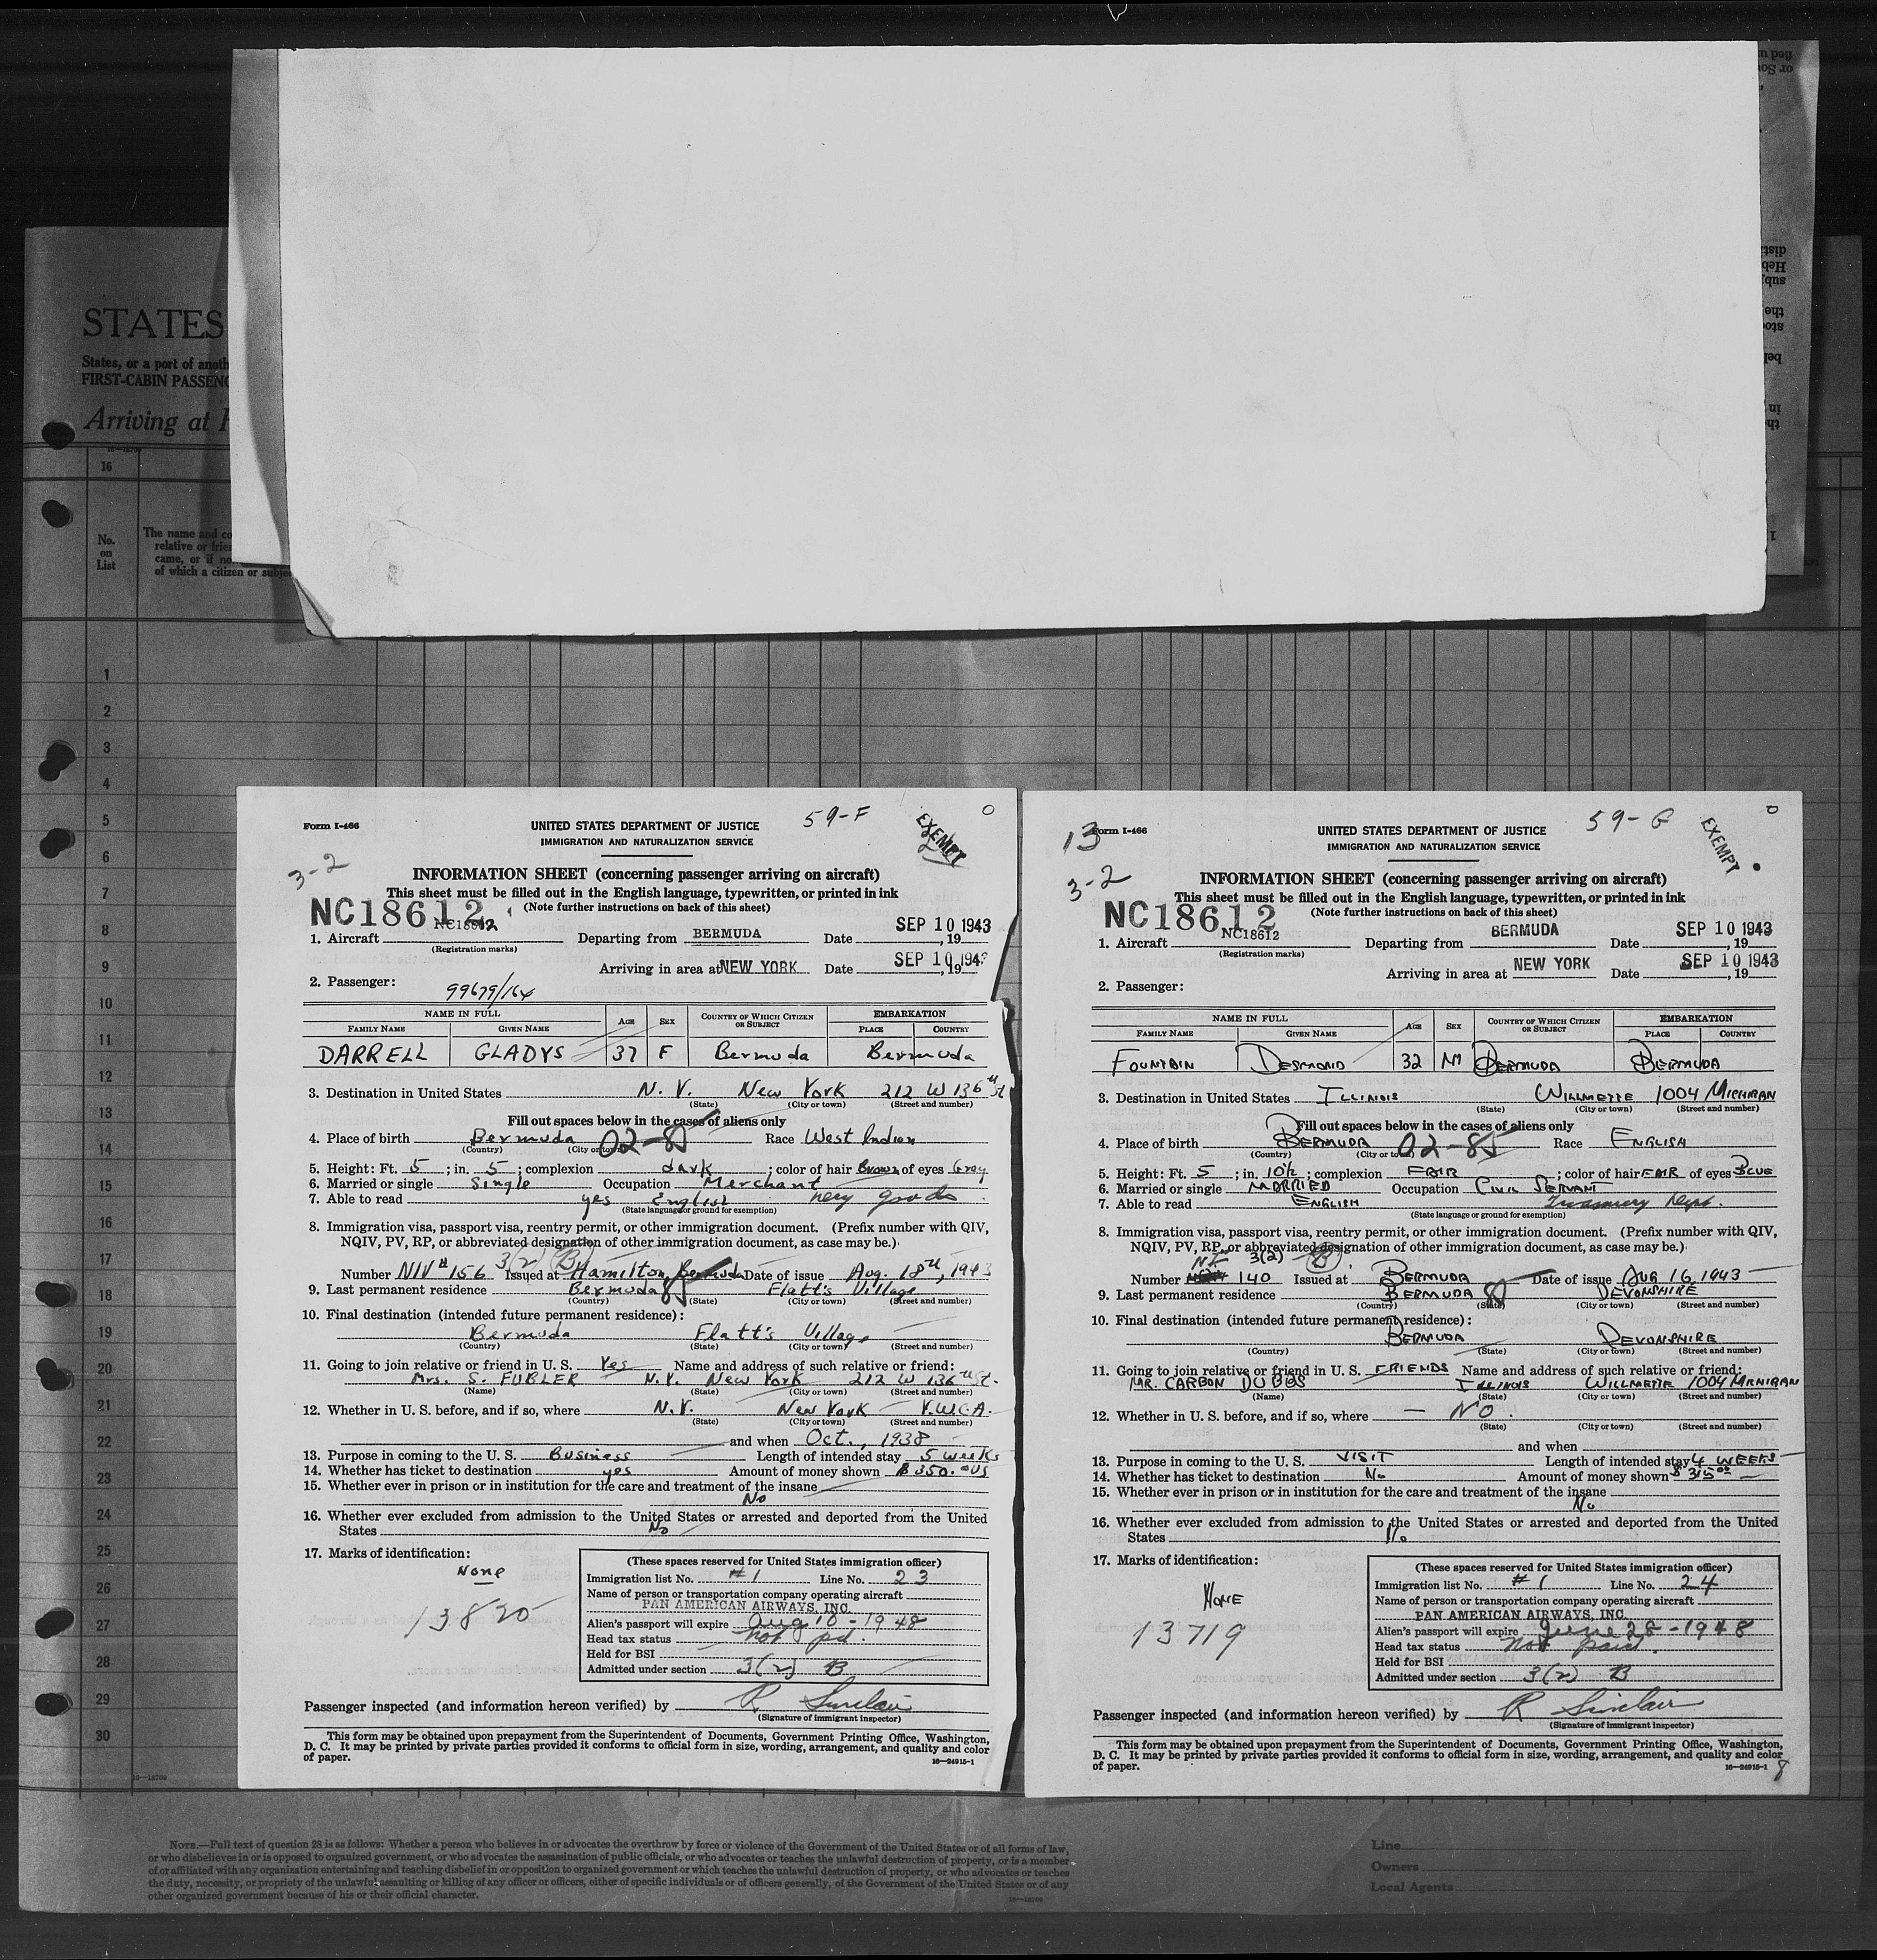 STATES
States, or a port of anoth
FIRST-CABIN PASSENG
Arriving at
16
No.
on
List
The name and co
relative or frie
came, or if no
of which a citizen or subje
1
2
3
4
5
6
7
8
9
10
11
12
13
14
15
16
17
18
19
20
21
22
23
24
25
26
27
28
29
30
Form I-466
59-F
EXEMPT
UNITED STATES DEPARTMENT OF JUSTICE
IMMIGRATION AND NATURALIZATION SERVICE
3-2
INFORMATION SHEET (concerning passenger arriving on aircraft)
This sheet must be filled out in the English language, typewritten, or printed in ink
(Note further instructions on back of this sheet)
NC18612
NC18612
1. Aircraft Departing from BERMUDA Date SEP 10 1943, 19
(Registration marks)
Arriving in area at NEW YORK Date SEP 10 1943, 19
2. Passenger: 99679/164
NAME IN FULL AGE SEX COUNTRY OF WHICH CITIZEN OR SUBJECT EMBARKATION
FAMILY NAME GIVEN NAME PLACE COUNTRY
DARRELL GLADYS 37 F Bermuda Bermuda
3. Destination in United States N. Y. New York 212 W 136th St
(State) (City or town) (Street and number)
Fill out spaces below in the cases of aliens only
4. Place of birth Bermuda 02-85 Race West Indian
(Country) (City or town)
5. Height: Ft. 5; in. 5; complexion dark; color of hair Brown of eyes Gray
6. Married or single Single Occupation Merchant
7. Able to read yes English goods
(State language or ground for exemption)
8. Immigration visa, passport visa, reentry permit, or other immigration document. (Prefix number with QIV,
NQIV, PV, RP, or abbreviated designation of other immigration document, as case may be.)
3(2) B
Number NIV # 156 Issued at Hamilton, Bermuda Date of issue Aug. 18th, 1943
9. Last permanent residence Bermuda Flatt's Village
(Country) (State) (City or town) (Street and number)
10. Final destination (intended future permanent residence):
Bermuda Flatt's Village
(Country) (State) (City or town) (Street and number)
11. Going to join relative or friend in U. S. Yes Name and address of such relative or friend:
Mrs. S. FUBLER N.Y. New York 212 W 136th St.
(Name) (State) (City or town) (Street and number)
12. Whether in U. S. before, and if so, where N.Y. New York Y.W.C.A.
(State) (City or town) (Street and number)
and when Oct., 1938
13. Purpose in coming to the U. S. Business Length of intended stay 5 weeks
14. Whether has ticket to destination yes Amount of money shown $ 350.00 US
15. Whether ever in prison or in institution for the care and treatment of the insane
No
16. Whether ever excluded from admission to the United States or arrested and deported from the United
States No
17. Marks of identification:
None
13820
(These spaces reserved for United States immigration officer)
Immigration list No. #1 Line No. 23
Name of person or transportation company operating aircraft
PAN AMERICAN AIRWAYS, INC.
Alien's passport will expire Aug 10-1948
Head tax status not pd.
Held for BSI
Admitted under section 3(2) B
Passenger inspected (and information hereon verified) by R Sinclair
(Signature of immigrant inspector)
This form may be obtained upon prepayment from the Superintendent of Documents, Government Printing Office, Washington,
D. C. It may be printed by private parties provided it conforms to official form in size, wording, arrangement, and quality and color
of paper.
16—24915-1
13
Form I-466
59-G
EXEMPT
UNITED STATES DEPARTMENT OF JUSTICE
IMMIGRATION AND NATURALIZATION SERVICE
3-2
INFORMATION SHEET (concerning passenger arriving on aircraft)
This sheet must be filled out in the English language, typewritten, or printed in ink
(Note further instructions on back of this sheet)
NC18612
NC18612
1. Aircraft Departing from BERMUDA Date SEP 10 1943, 19
(Registration marks)
Arriving in area at NEW YORK Date SEP 10 1943, 19
2. Passenger:
NAME IN FULL AGE SEX COUNTRY OF WHICH CITIZEN OR SUBJECT EMBARKATION
FAMILY NAME GIVEN NAME PLACE COUNTRY
FOUNTAIN DESMOND 32 M BERMUDA BERMUDA
3. Destination in United States ILLINOIS WILLMETTE 1004 MICHIGAN
(State) (City or town) (Street and number)
Fill out spaces below in the cases of aliens only
4. Place of birth BERMUDA 02-85 Race ENGLISH
(Country) (City or town)
5. Height: Ft. 5; in. 10½; complexion FAIR; color of hair FAIR of eyes BLUE
6. Married or single MARRIED Occupation CIVIL SERVANT
7. Able to read ENGLISH Treasury Dept.
(State language or ground for exemption)
8. Immigration visa, passport visa, reentry permit, or other immigration document. (Prefix number with QIV,
NQIV, PV, RP, or abbreviated designation of other immigration document, as case may be.)
3(2) B
Number 140 Issued at BERMUDA Date of issue AUG 16, 1943
9. Last permanent residence BERMUDA DEVONSHIRE
(Country) (State) (City or town) (Street and number)
10. Final destination (intended future permanent residence):
BERMUDA DEVONSHIRE
(Country) (State) (City or town) (Street and number)
11. Going to join relative or friend in U. S. FRIENDS Name and address of such relative or friend:
MR. CARBON DUBBS ILLINOIS WILLMETTE 1004 MICHIGAN
(Name) (State) (City or town) (Street and number)
12. Whether in U. S. before, and if so, where — NO.
(State) (City or town) (Street and number)
and when
13. Purpose in coming to the U. S. VISIT Length of intended stay 4 WEEKS
14. Whether has ticket to destination No Amount of money shown $ 315.00
15. Whether ever in prison or in institution for the care and treatment of the insane
No
16. Whether ever excluded from admission to the United States or arrested and deported from the United
States No
17. Marks of identification:
NONE
13719
(These spaces reserved for United States immigration officer)
Immigration list No. #1 Line No. 24
Name of person or transportation company operating aircraft
PAN AMERICAN AIRWAYS, INC.
Alien's passport will expire June 28-1948
Head tax status not paid.
Held for BSI
Admitted under section 3(2) B
Passenger inspected (and information hereon verified) by R Sinclair
(Signature of immigrant inspector)
This form may be obtained upon prepayment from the Superintendent of Documents, Government Printing Office, Washington,
D. C. It may be printed by private parties provided it conforms to official form in size, wording, arrangement, and quality and color
of paper.
16—24915-1
8
NOTE.—Full text of question 28 is as follows: Whether a person who believes in or advocates the overthrow by force or violence of the Government of the United States or of all forms of law,
or who disbelieves in or is opposed to organized government, or who advocates the assassination of public officials, or who advocates or teaches the unlawful destruction of property, or is a member
of or affiliated with any organization entertaining and teaching disbelief in or opposition to organized government or which teaches the unlawful destruction of property, or who advocates or teaches
the duty, necessity, or propriety of the unlawful assaulting or killing of any officer or officers, either of specific individuals or of officers generally, of the Government of the United States or of any
other organized government because of his or their official character.
Line
Owners
Local Agents